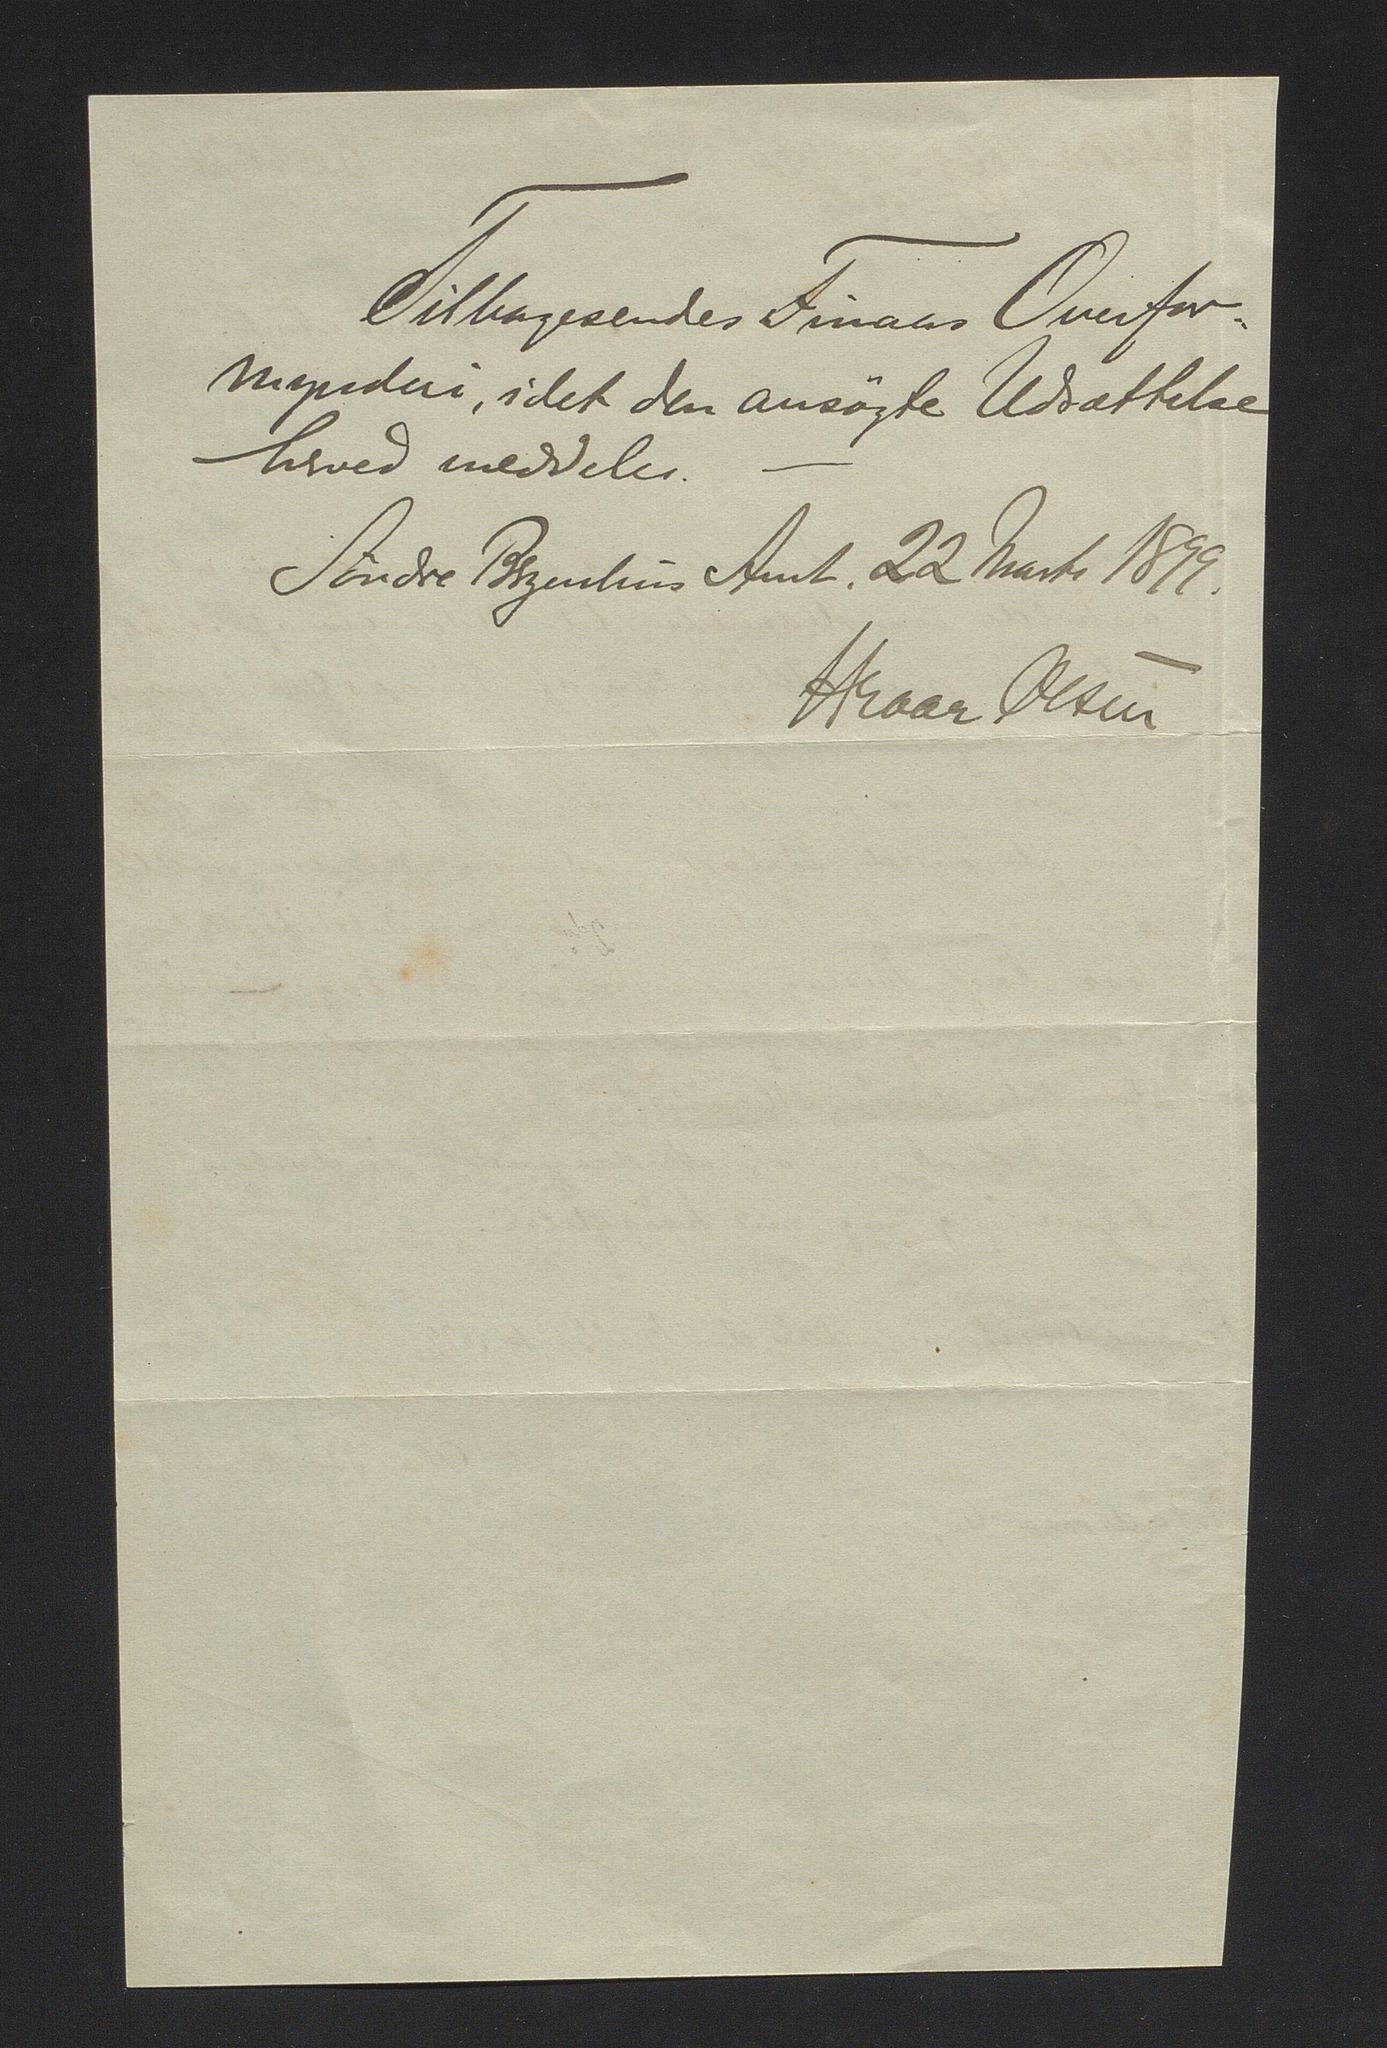 Tilbagesendes Finaas Overfor-
mynderi, idet den ansögte Udsættelse
herved meddeles. —
Söndre Bergenhus Amt. 22 Marts 1899.
Hroar Olsen